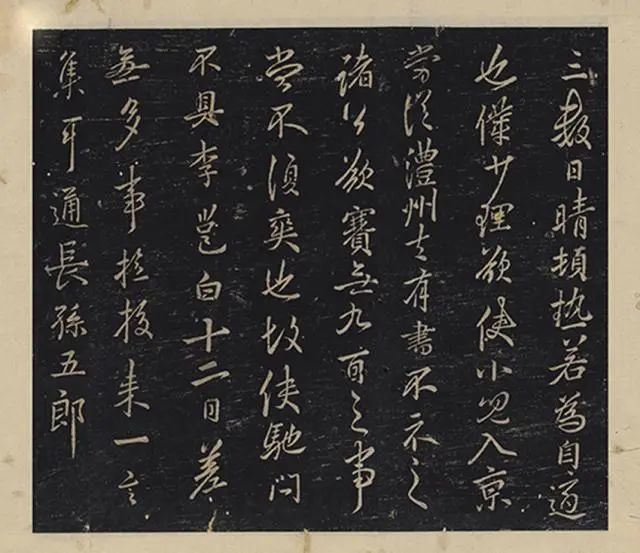 三數日晴頓熱若為自適
也僕少理欲使小兒入京
當從澧州去有書不示之
諸公欲賽無九之事
當不須爽也故使馳問
不具李邕白十二日若
無多事投來一言
集耳通長孫五郎